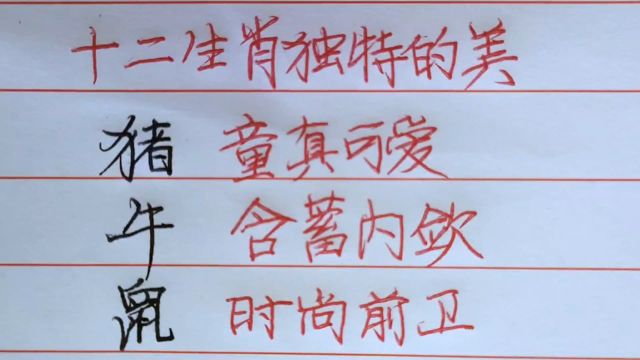 十二生肖独特的美
猪 童真可爱
牛 含蓄内敛
鼠 时尚前卫